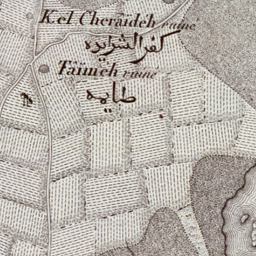 Kel Cheraïdeh ruiné
كفر الشرايده
Taïmeh ruiné
طايمه